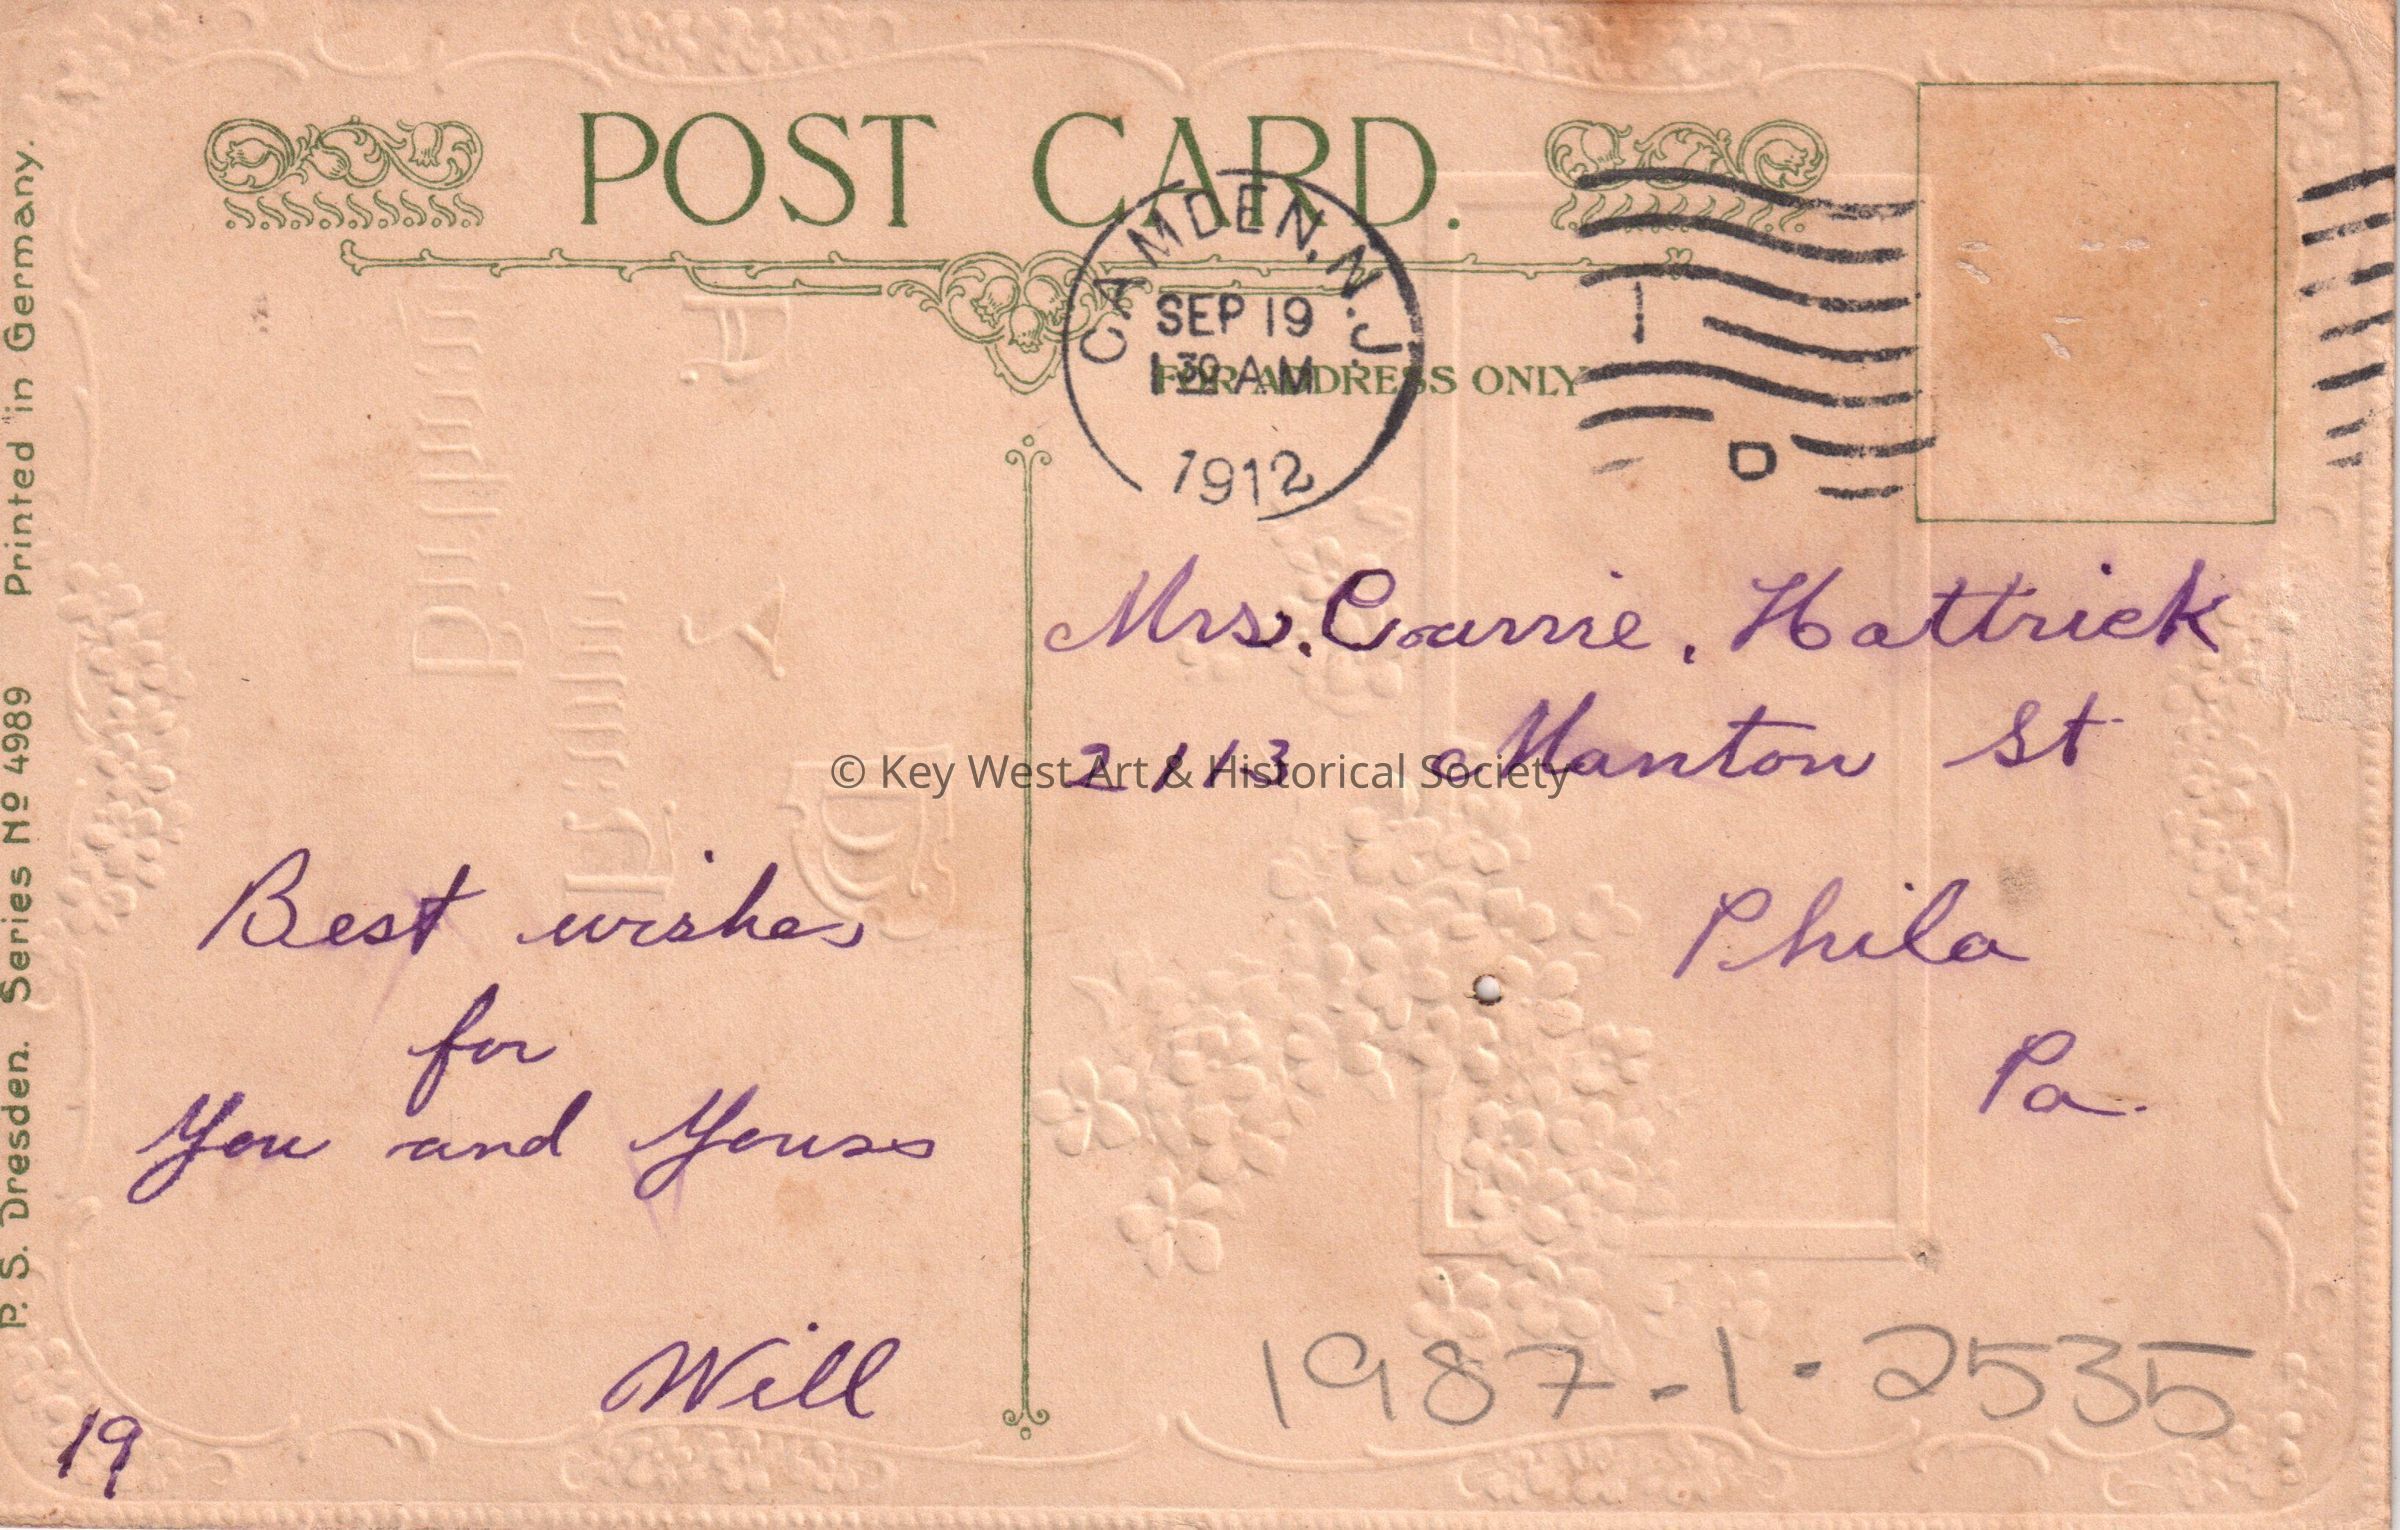 POST CARD.
CAMDEN, N.J.
SEP 19
1 30 AM
1912
D
FOR ADDRESS ONLY
Mrs. Carrie. Hattrick
2113 Manton St
Phila
Pa.
© Key West Art & Historical Society
Best wishes
for
You and Yours
Will
19
1987-1-2535
P. S. Dresden. Series No 4989 Printed in Germany.